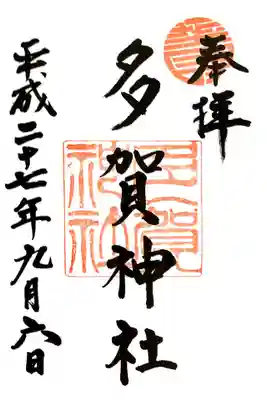 奉拝
多賀神社
多賀神社
平成二十七年九月六日